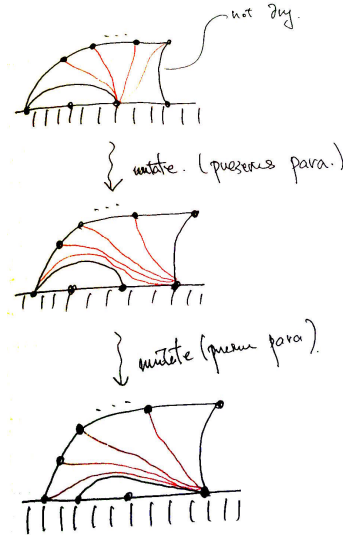 not
mutate. (preserves para.)
mutate (preserve para).